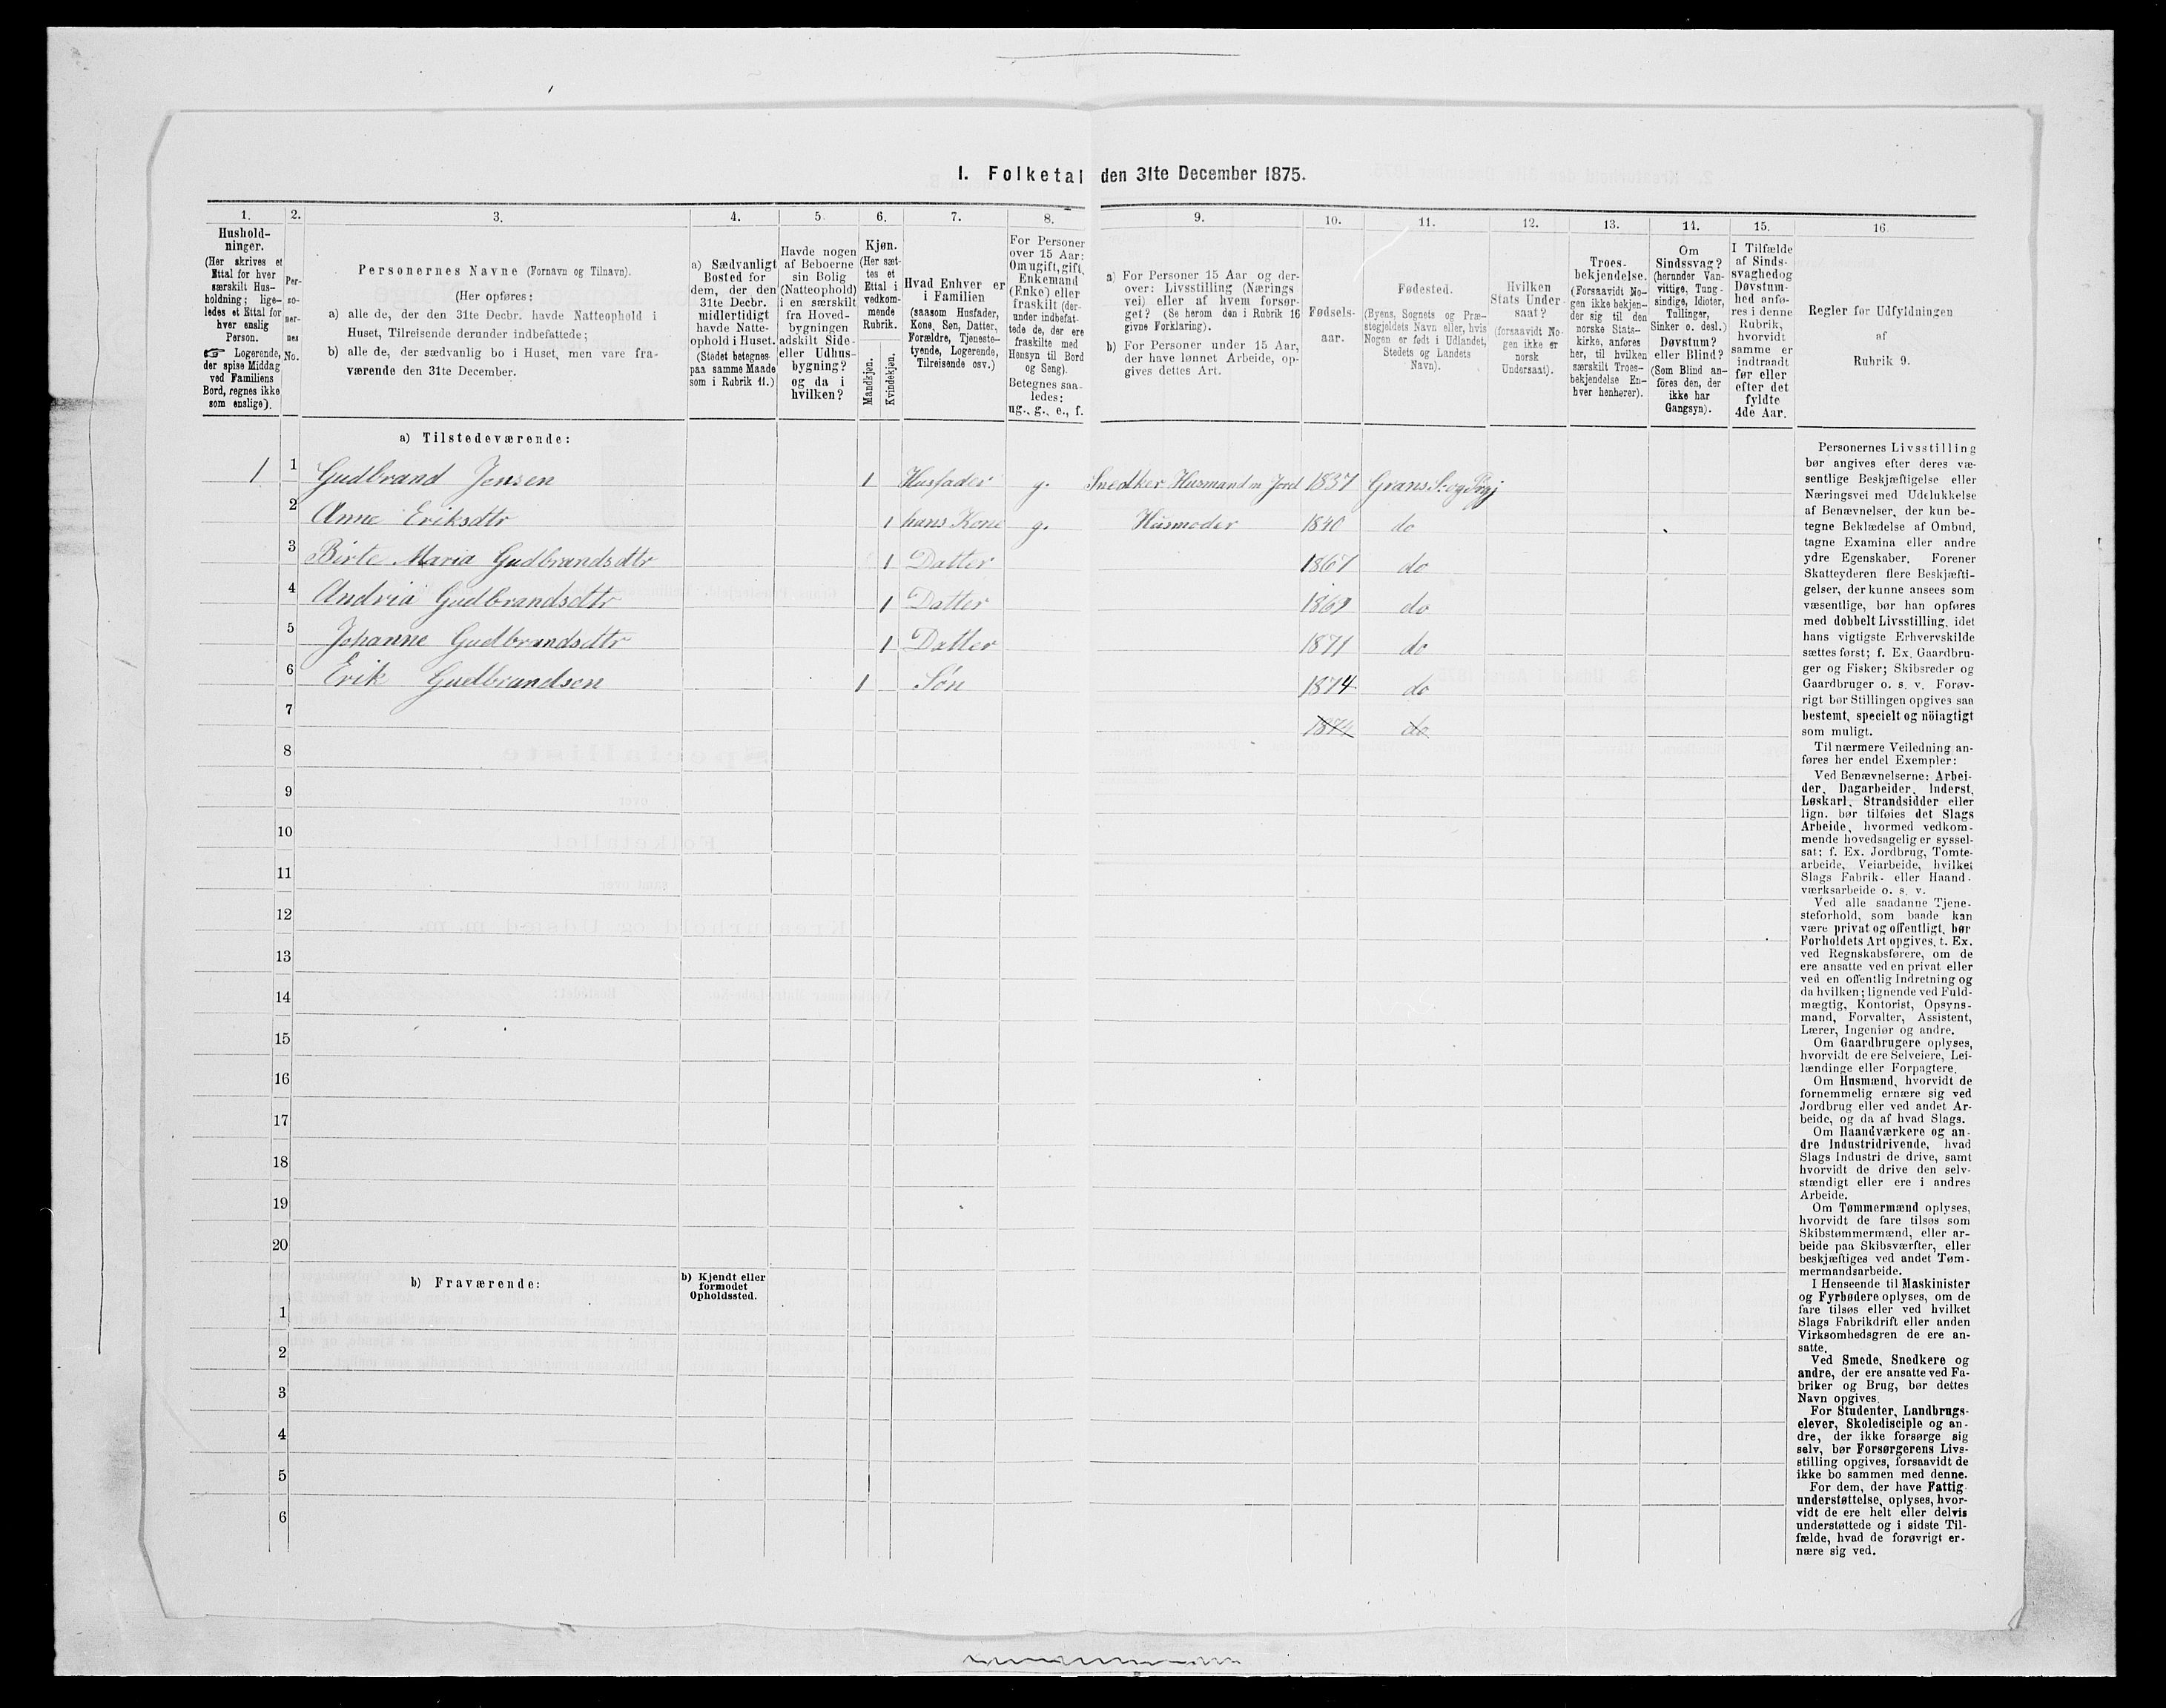 I. Folketal den 31te December 1875.
1. 2. 3. 4. 5. 6. 7. 8. 9. 10. 11. 12. 13. 14. 15. 16.
Hushold-
ninger.
(Her skrives et
Ettal for hver
særskilt Hus-
holdning; lige-
ledes et Ettal for
hver enslig
Person.
☞ Logerende,
der spise Middag
ved Familiens
Bord, regnes ikke
som enslige).
Per-
so-
ner-
nes
No.
Personernes Navne (Fornavn og Tilnavn).
(Her opføres:
a) alle de, der den 31te Decbr. havde Natteophold i
Huset, Tilreisende derunder indbefattede;
b) alle de, der sædvanlig bo i Huset, men vare fra-
værende den 31te December.
a) Sædvanligt
Bosted for
dem, der den
31te Decbr.
midlertidigt
havde Natte-
ophold i Huset.
(Stedet betegnes
paa samme Maade
som i Rubrik 11.)
Havde nogen
af Beboerne
sin Bolig
(Natteophold)
i en særskilt
fra Hoved-
bygningen
adskilt Side-
eller Udhus-
bygning?
og da i
hvilken?
Kjøn.
(Her sæt-
tes et
Ettal i
vedkom-
mende
Rubrik.
Mandkjøn.
Kvindekjøn.
Hvad Enhver er
i Familien
(saasom Husfader,
Kone, Søn, Datter,
Forældre, Tjeneste-
tyende, Logerende,
Tilreisende osv.)
For Personer
over 15 Aar:
Om ugift, gift,
Enkemand
(Enke) eller
fraskilt (der-
under indbefat-
tede de, der ere
fraskilte med
Hensyn til Bord
og Seng).
Betegnes saa-
ledes:
ug., g., e., f.
a) For Personer 15 Aar og der-
over: Livsstilling (Nærings
vei) eller af hvem forsør-
get? (Se herom den i Rubrik 16
givne Forklaring).
b) For Personer under 15 Aar,
der have lønnet Arbeide, op-
gives dettes Art.
Fødsels-
aar.
Fødested.
(Byens, Sognets og Præ-
stegjeldets Navn eller, hvis
Nogen er født i Udlandet,
Stedets og Landets
Navn).
Hvilken
Stats Under-
saat?
(forsaavidt No-
gen ikke er
norsk
Undersaat).
Troes-
bekjendelse.
(Forsaavidt No-
gen ikke bekjen-
der sig til den
norske Stats-
kirke, anføres
her, til hvilken
særskilt Troes-
bekjendelse En-
hver henhører).
Om
Sindssvag?
(herunder Van-
vittige, Tung-
sindige, Idioter,
Tullinger,
Sinker o. desl.)
Døvstum?
eller Blind?
(Som Blind an-
føres den, der
ikke har
Gangsyn).
I Tilfælde
af Sinds-
svaghed og
Døvstum-
hed anfø-
res i denne
Rubrik,
hvorvidt
samme er
indtraadt
før eller
efter det
fyldte
4de Aar.
Regler for Udfyldningen
af
Rubrik 9.
a) Tilstedeværende:
1 1 Gudbrand Jensen 1 Husfader g. Snedker Husmand m Jord 1837 Grans S. og Prgj
2 Anne Eriksdtr 1 hans Kone g. Husmoder 1840 do
3 Birte Maria Gudbrandsdtr 1 Datter 1867 do
4 Andria Gudbrandsdtr 1 Datter 1869 do
5 Johanne Gudbrandsdtr 1 Datter 1871 do
6 Erik Gudbrandsen 1 Søn 1874 do
7 1874 do
8
9
10
11
12
13
14
15
16
17
18
19
20
b) Fraværende:
b) Kjendt eller
formodet
Opholdssted.
1
2
3
4
5
6
Personernes Livsstilling
bør angives efter deres væ-
sentlige Beskjæftigelse eller
Næringsvei med Udelukkelse
af Benævnelser, der kun be-
tegne Beklædelse af Ombud,
tagne Examina eller andre
ydre Egenskaber. Forener
Skatteyderen flere Beskjæfti-
gelser, der kunne ansees som
væsentlige, bør han opføres
med dobbelt Livsstilling, idet
hans vigtigste Erhvervskilde
sættes først; f. Ex. Gaardbru-
ger og Fisker; Skibsreder og
Gaardbruger o. s. v. Forøv-
rigt bør Stillingen opgives saa
bestemt, specielt og nöiagtigt
som muligt.
Til nærmere Veiledning an-
føres her endel Exempler:
Ved Benævnelserne: Arbei-
der, Dagarbeider, Inderst,
Løskarl, Strandsidder eller
lign. bør tilføies det Slags
Arbeide, hvormed vedkom-
mende hovedsagelig er syssel-
sat; f. Ex. Jordbrug, Tomte-
arbeide, Veiarbeide, hvilket
Slags Fabrik- eller Haand-
værksarbeide o. s. v.
Ved alle saadanne Tjene-
steforhold, som baade kan
være privat og offentligt, bør
Forholdets Art opgives, t. Ex.
ved Regnskabsførere, om de
ere ansatte ved en privat eller
ved en offentlig Indretning og
da hvilken; lignende ved Fuld-
mægtig, Kontorist, Opsyns-
mand, Forvalter, Assistent,
Lærer, Ingeniør og andre.
Om Gaardbrugere oplyses,
hvorvidt de ere Selveiere, Lei-
lændinge eller Forpagtere.
Om Husmænd, hvorvidt de
fornemmelig ernære sig ved
Jordbrug eller ved andet Ar-
beide, og da af hvad Slags.
Om Haandværkere og an-
dre Industridrivende, hvad
Slags Industri de drive, samt
hvorvidt de drive den selv-
stændigt eller ere i andres
Arbeide.
Om Tømmermænd oplyses,
hvorvidt de fare tilsøs som
Skibstømmermænd, eller ar-
beide paa Skibsværfter, eller
beskjæftiges ved andet Tøm-
mermandsarbeide.
I Henseende til Maskinister
og Fyrbødere oplyses, om de
fare tilsøs eller ved hvilket
Slags Fabrikdrift eller anden
Virksomhedsgren de ere an-
satte.
Ved Smede, Snedkere og
andre, der ere ansatte ved Fa-
briker og Brug, bør dettes
Navn opgives.
For Studenter, Landbrugs-
elever, Skoledisciple og an-
dre, der ikke forsørge sig
selv, bør Forsørgerens Livs-
stilling opgives, forsaavidt de
ikke bo sammen med denne.
For dem, der have Fattig-
understøttelse, oplyses, hvor-
vidt de ere helt eller delvis
understøttede og i sidste Til-
fælde, hvad de forøvrigt er-
nære sig ved.